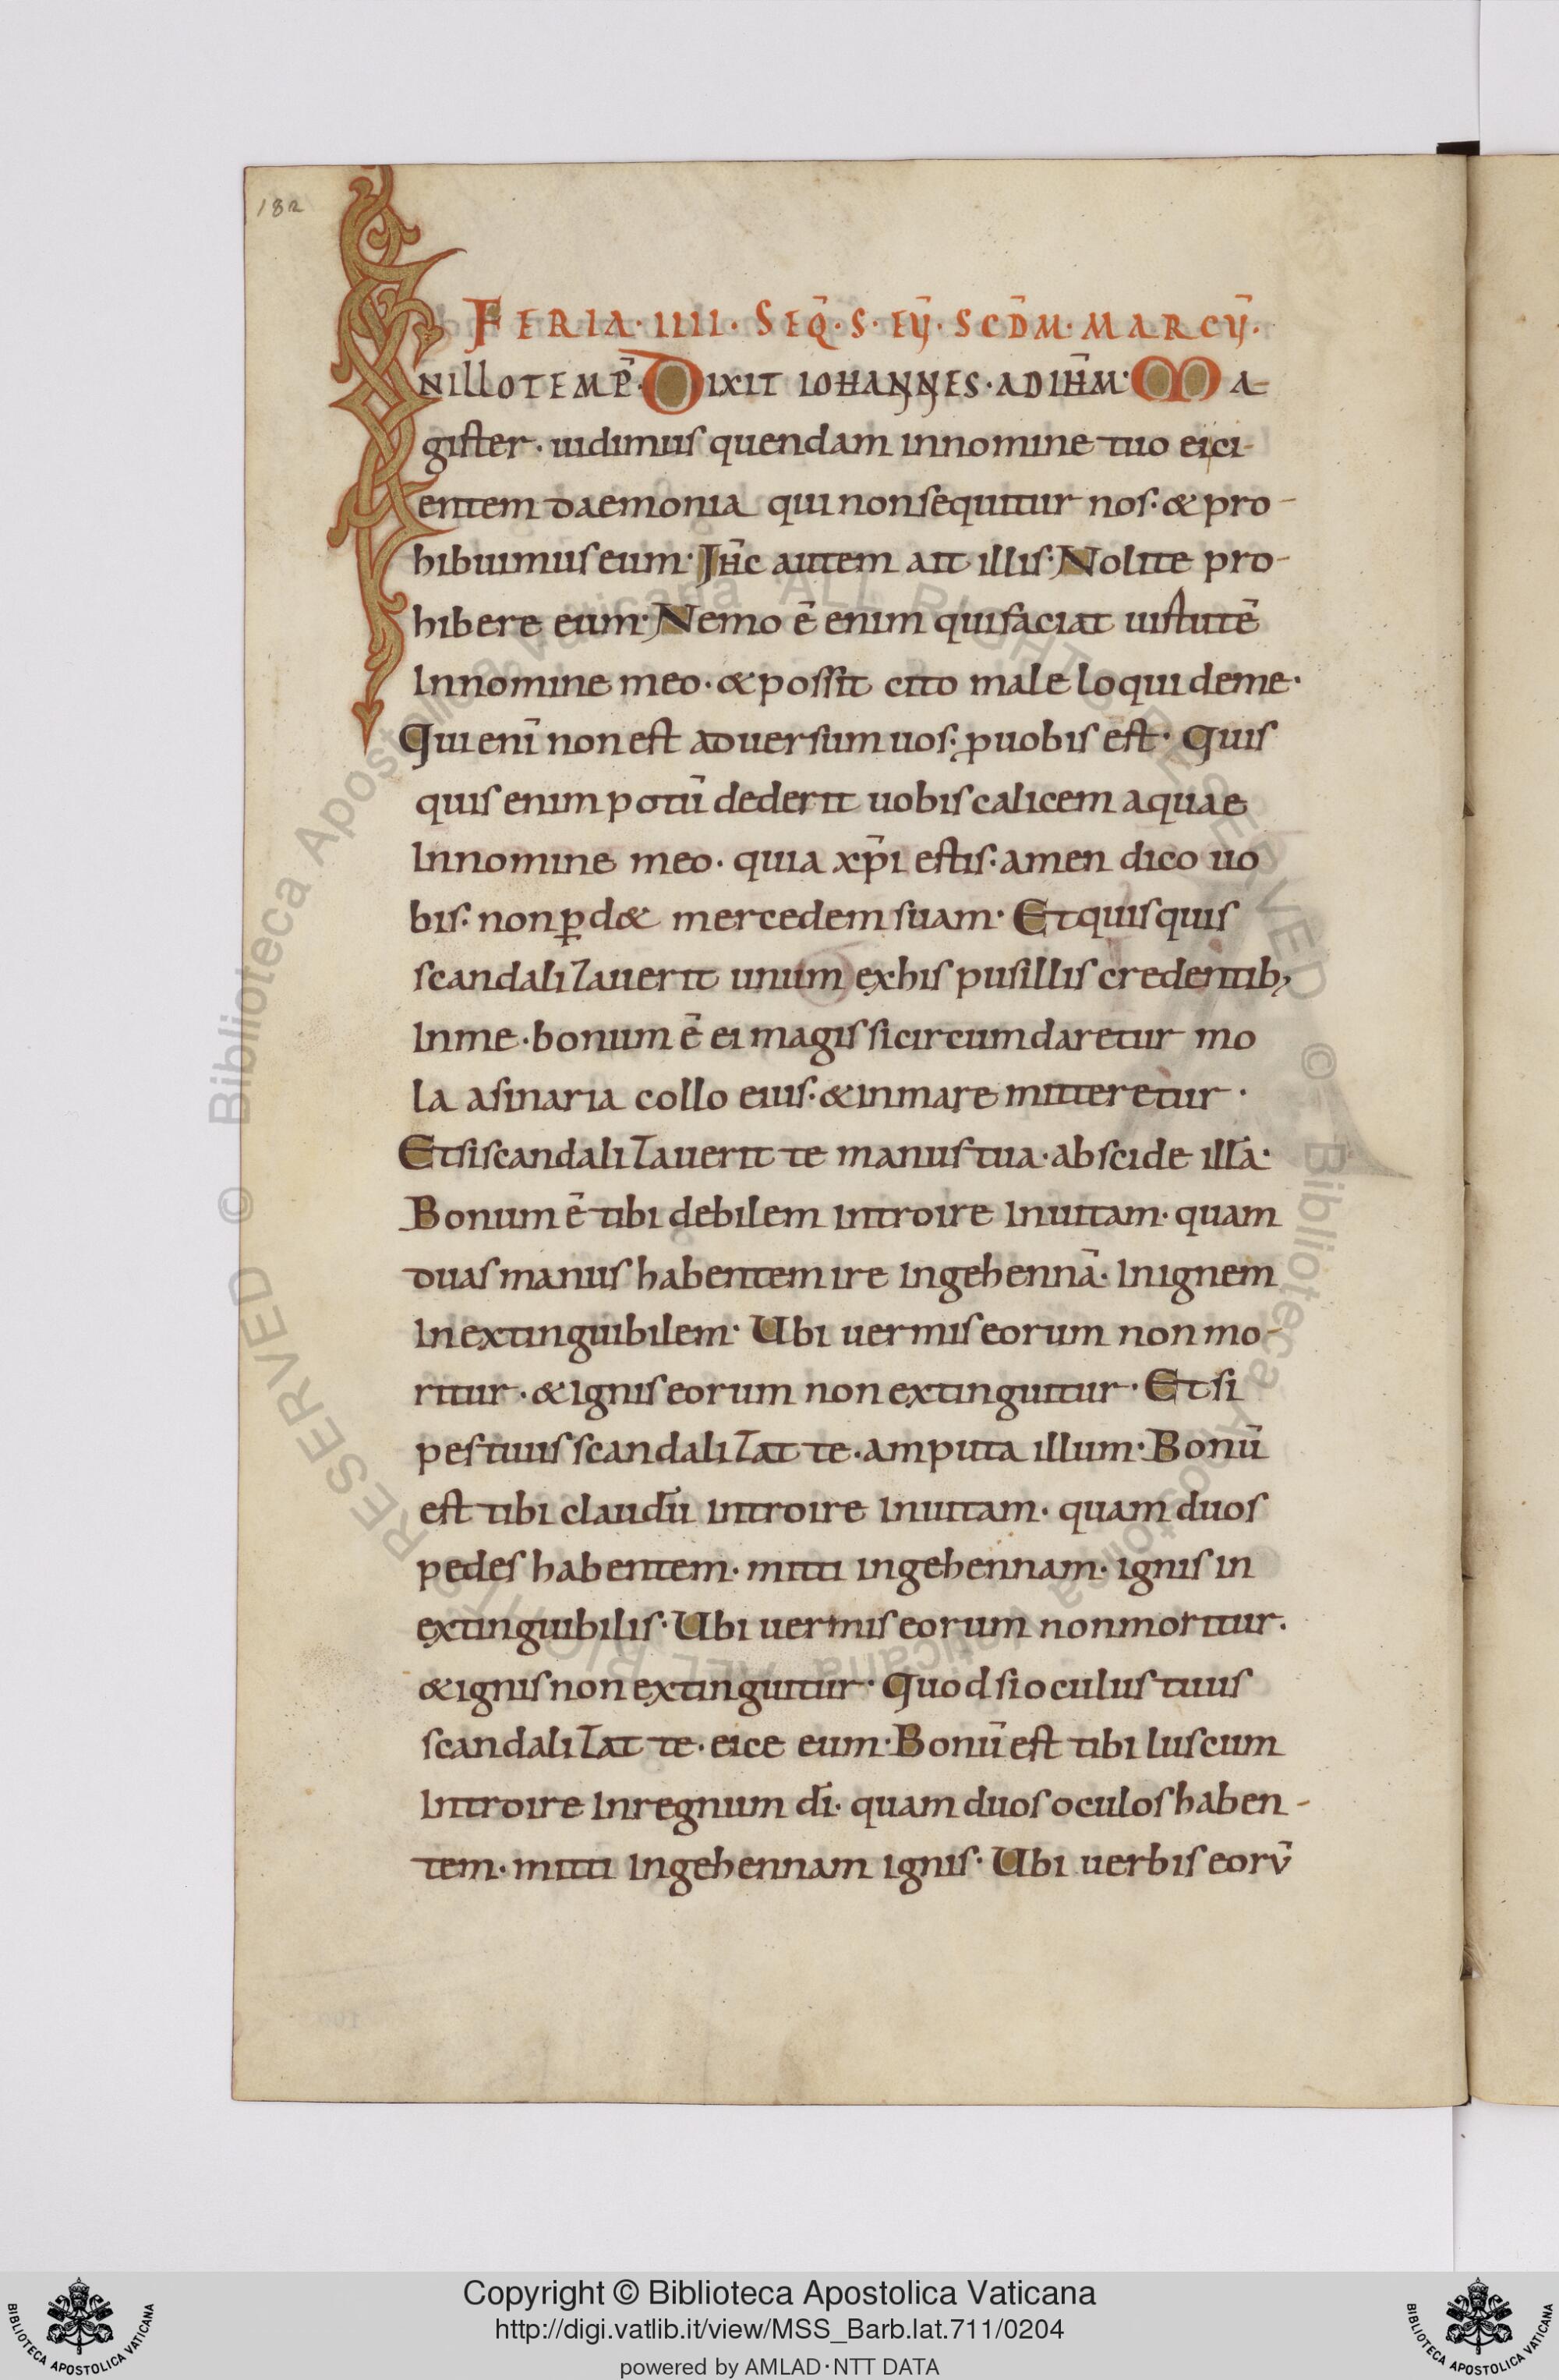 182
FERIA·IIII· SEQ̄·S·EỸ·SCD̄M·MARCỸ·
INILLOTEMP̄·DIXIT IOHANNES·ADIH̄M·MA-
gister·uidimus quendam innomine tuo eici-
entem daemonia qui nonsequitur nos:& pro-
hibuimus eum·Ih̄c autem ait illis:Nolite pro-
hibere eum·Nemo ē enim quifaciat uirtutē
Innomine meo·&possit cito male loqui deme·
Qui enī non est aduersum uos:ꝓuobis est· Quis
quis enim potū dederit uobis calicem aquae
Innomine meo· quia xp̄i estis:amen dico uo
bis: non ꝑd& mercedem suam· Et quisquis
scandalizauerit unum exhis pusillis credentib;
Inme·bonum ē ei magis si circumdaretur mo
la asinaria collo eius·&inmare mitteretur·
Et si scandalizauerit te manus tua·abscide illā·
Bonum ē tibi debilem introire Inuitam· quam
duas manus habentem ire Ingehennā· Inignem
Inextinguibilem· Ubi uermis eorum non mo-
ritur·&Ignis eorum non extinguitur· Et si
pes tuus scandalizat te·amputa illum·Bonū
est tibi claudū Introire Inuitam· quam duos
pedes habentem· mitti ingehennam· ignis in
extinguibilis·Ubi uermis eorum nonmoritur·
&ignis non extinguitur· Quod si oculus tuus
scandalizat te·eice eum·Bonū est tibi luscum
Introire Inregnum dī· quam duos oculos haben-
tem·mitti Ingehennam ignis· Ubi uerbis eorv̄
© Biblioteca Apostolica Vaticana ALL RIGHTS RESERVED © Biblioteca Apostolica Vaticana ALL RIGHTS RESERVED
Copyright © Biblioteca Apostolica Vaticana
http://digi.vatlib.it/view/MSS_Barb.lat.711/0204
powered by AMLAD·NTT DATA
BIBLIOTECA APOSTOLICA VATICANA
BIBLIOTECA APOSTOLICA VATICANA